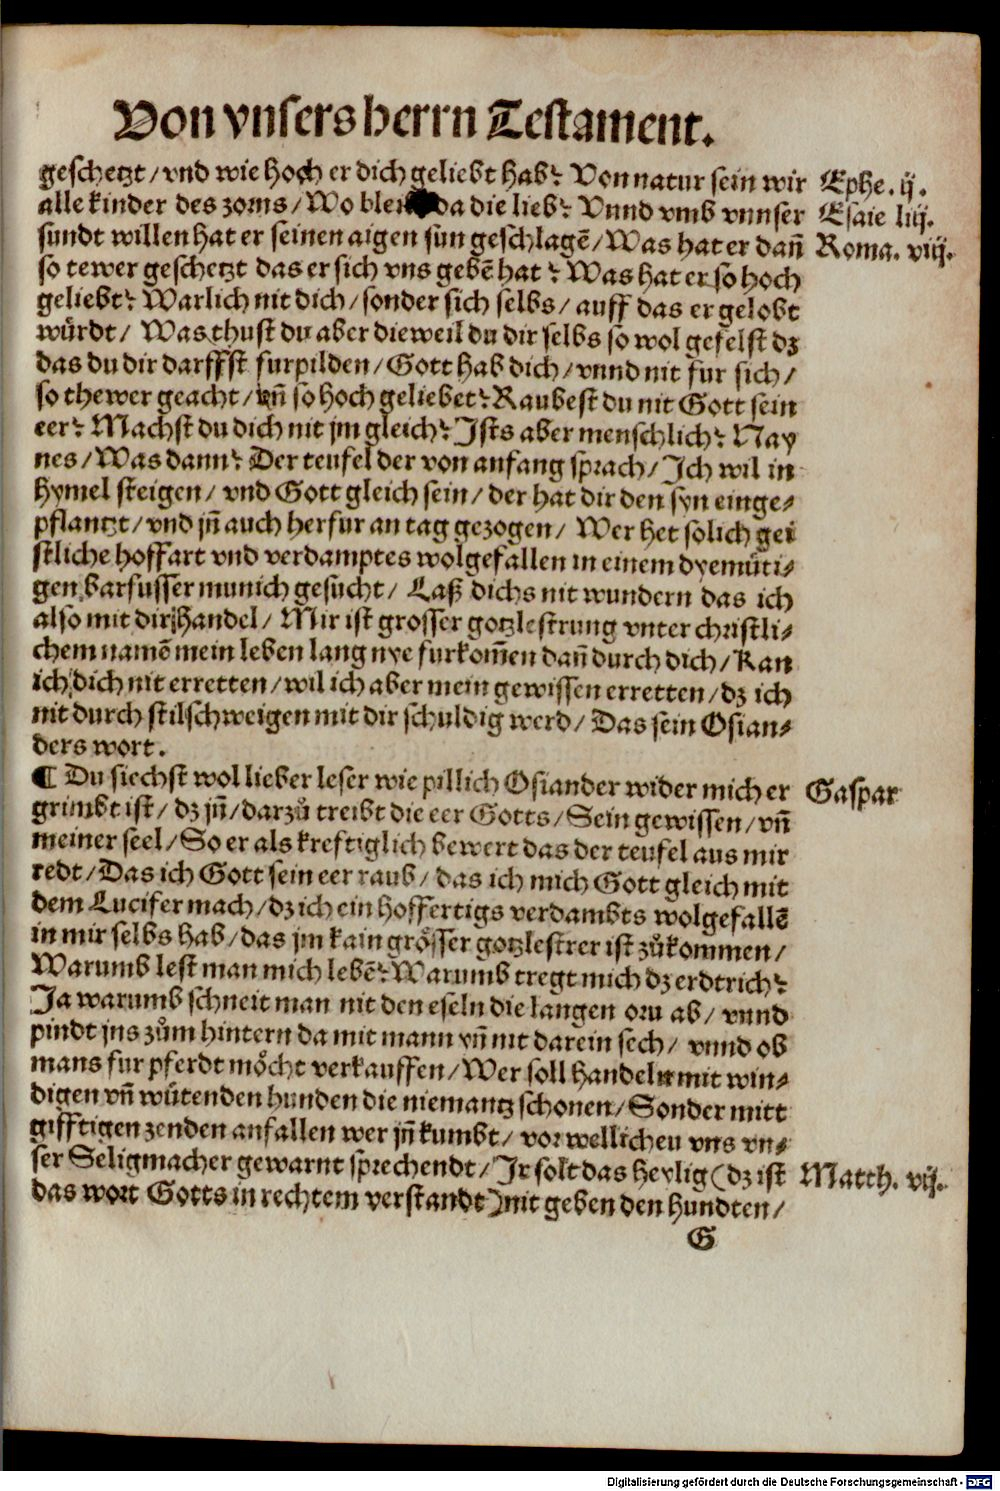 Von vnsers herrn Testament.
geschetzt / vnd wie hoch er dich geliebt hab? Von natur sein wir Ephe. ij.
alle kinder des zorns / Wo da die lieb? Vnnd vmb vnnser Esaie liij.
sundt willen hat er seinen aigen sun geschlagē / Was hat er dañ Roma. viij.
so tewer geschetzt das er sich vns gebē hat? Was hat er so hoch
geliebt? Warlich nit dich / sonder sich selbs / auff das er gelobt
wůrdt / Was thust du aber dieweil du dir selbs so wol gefelst dz
das du dir darffst furpilden / Gott hab dich / vnnd nit fur sich /
so thewer geacht / vñ so hoch geliebet? Raubest du nit Gott sein
eer? Machst du dich nit jm gleich? Jsts aber menschlich? Nay
nes / Was dann? Der teufel der von anfang sprach / Jch wil in
hymel steigen / vnd Gott gleich sein / der hat dir den syn einge-
pflantzt / vnd jñ auch herfur an tag gezogen / Wer het solich gei
stliche hoffart vnd verdamptes wolgefallen in einem dyemůti-
gen barfusser munich gesucht / Laß dichs nit wundern das ich
also mit dir handel / Mir ist grosser gotzlestrung vnter christli-
chem namē mein leben lang nye furkom̄en dañ durch dich / Kan
ich dich nit erretten / wil ich aber mein gewissen erretten / dz ich
nit durch stilschweigen mit dir schuldig werd / Das sein Osian-
ders wort.
¶ Du siechst wol lieber leser wie pillich Osiander wider mich er Gaspar
grimbt ist / dz jñ / darzů treibt die eer Gotts / Sein gewissen / vñ
meiner seel / So er als kreftiglich bewert das der teufel aus mir
redt / Das ich Gott sein eer raub / das ich mich Gott gleich mit
dem Lucifer mach / dz ich ein hoffertigs verdambts wolgefallē
in mir selbs hab / das jm kain grősser gotzlestrer ist zůkommen /
Warumb lest man mich lebē? Warumb tregt mich dz erdtrich?
Ja warumb schneit man nit den eseln die langen orn ab / vnnd
pindt jns zům hintern da mit mann vñ nit darein sech / vnnd ob
mans fur pferdt mőcht verkauffen / Wer soll handeln mit win-
digen vñ wůtenden hunden die niemantz schonen / Sonder mitt
gifftigen zenden anfallen wer jñ kumbt / vor wellichen vns vn-
ser Seligmacher gewarnt sprechendt / Jr solt das heylig (dz ist Matth. vij.
das wort Gotts in rechtem verstandt) nit geben den hundten /
G
Digitalisierung gefördert durch die Deutsche Forschungsgemeinschaft - DFG